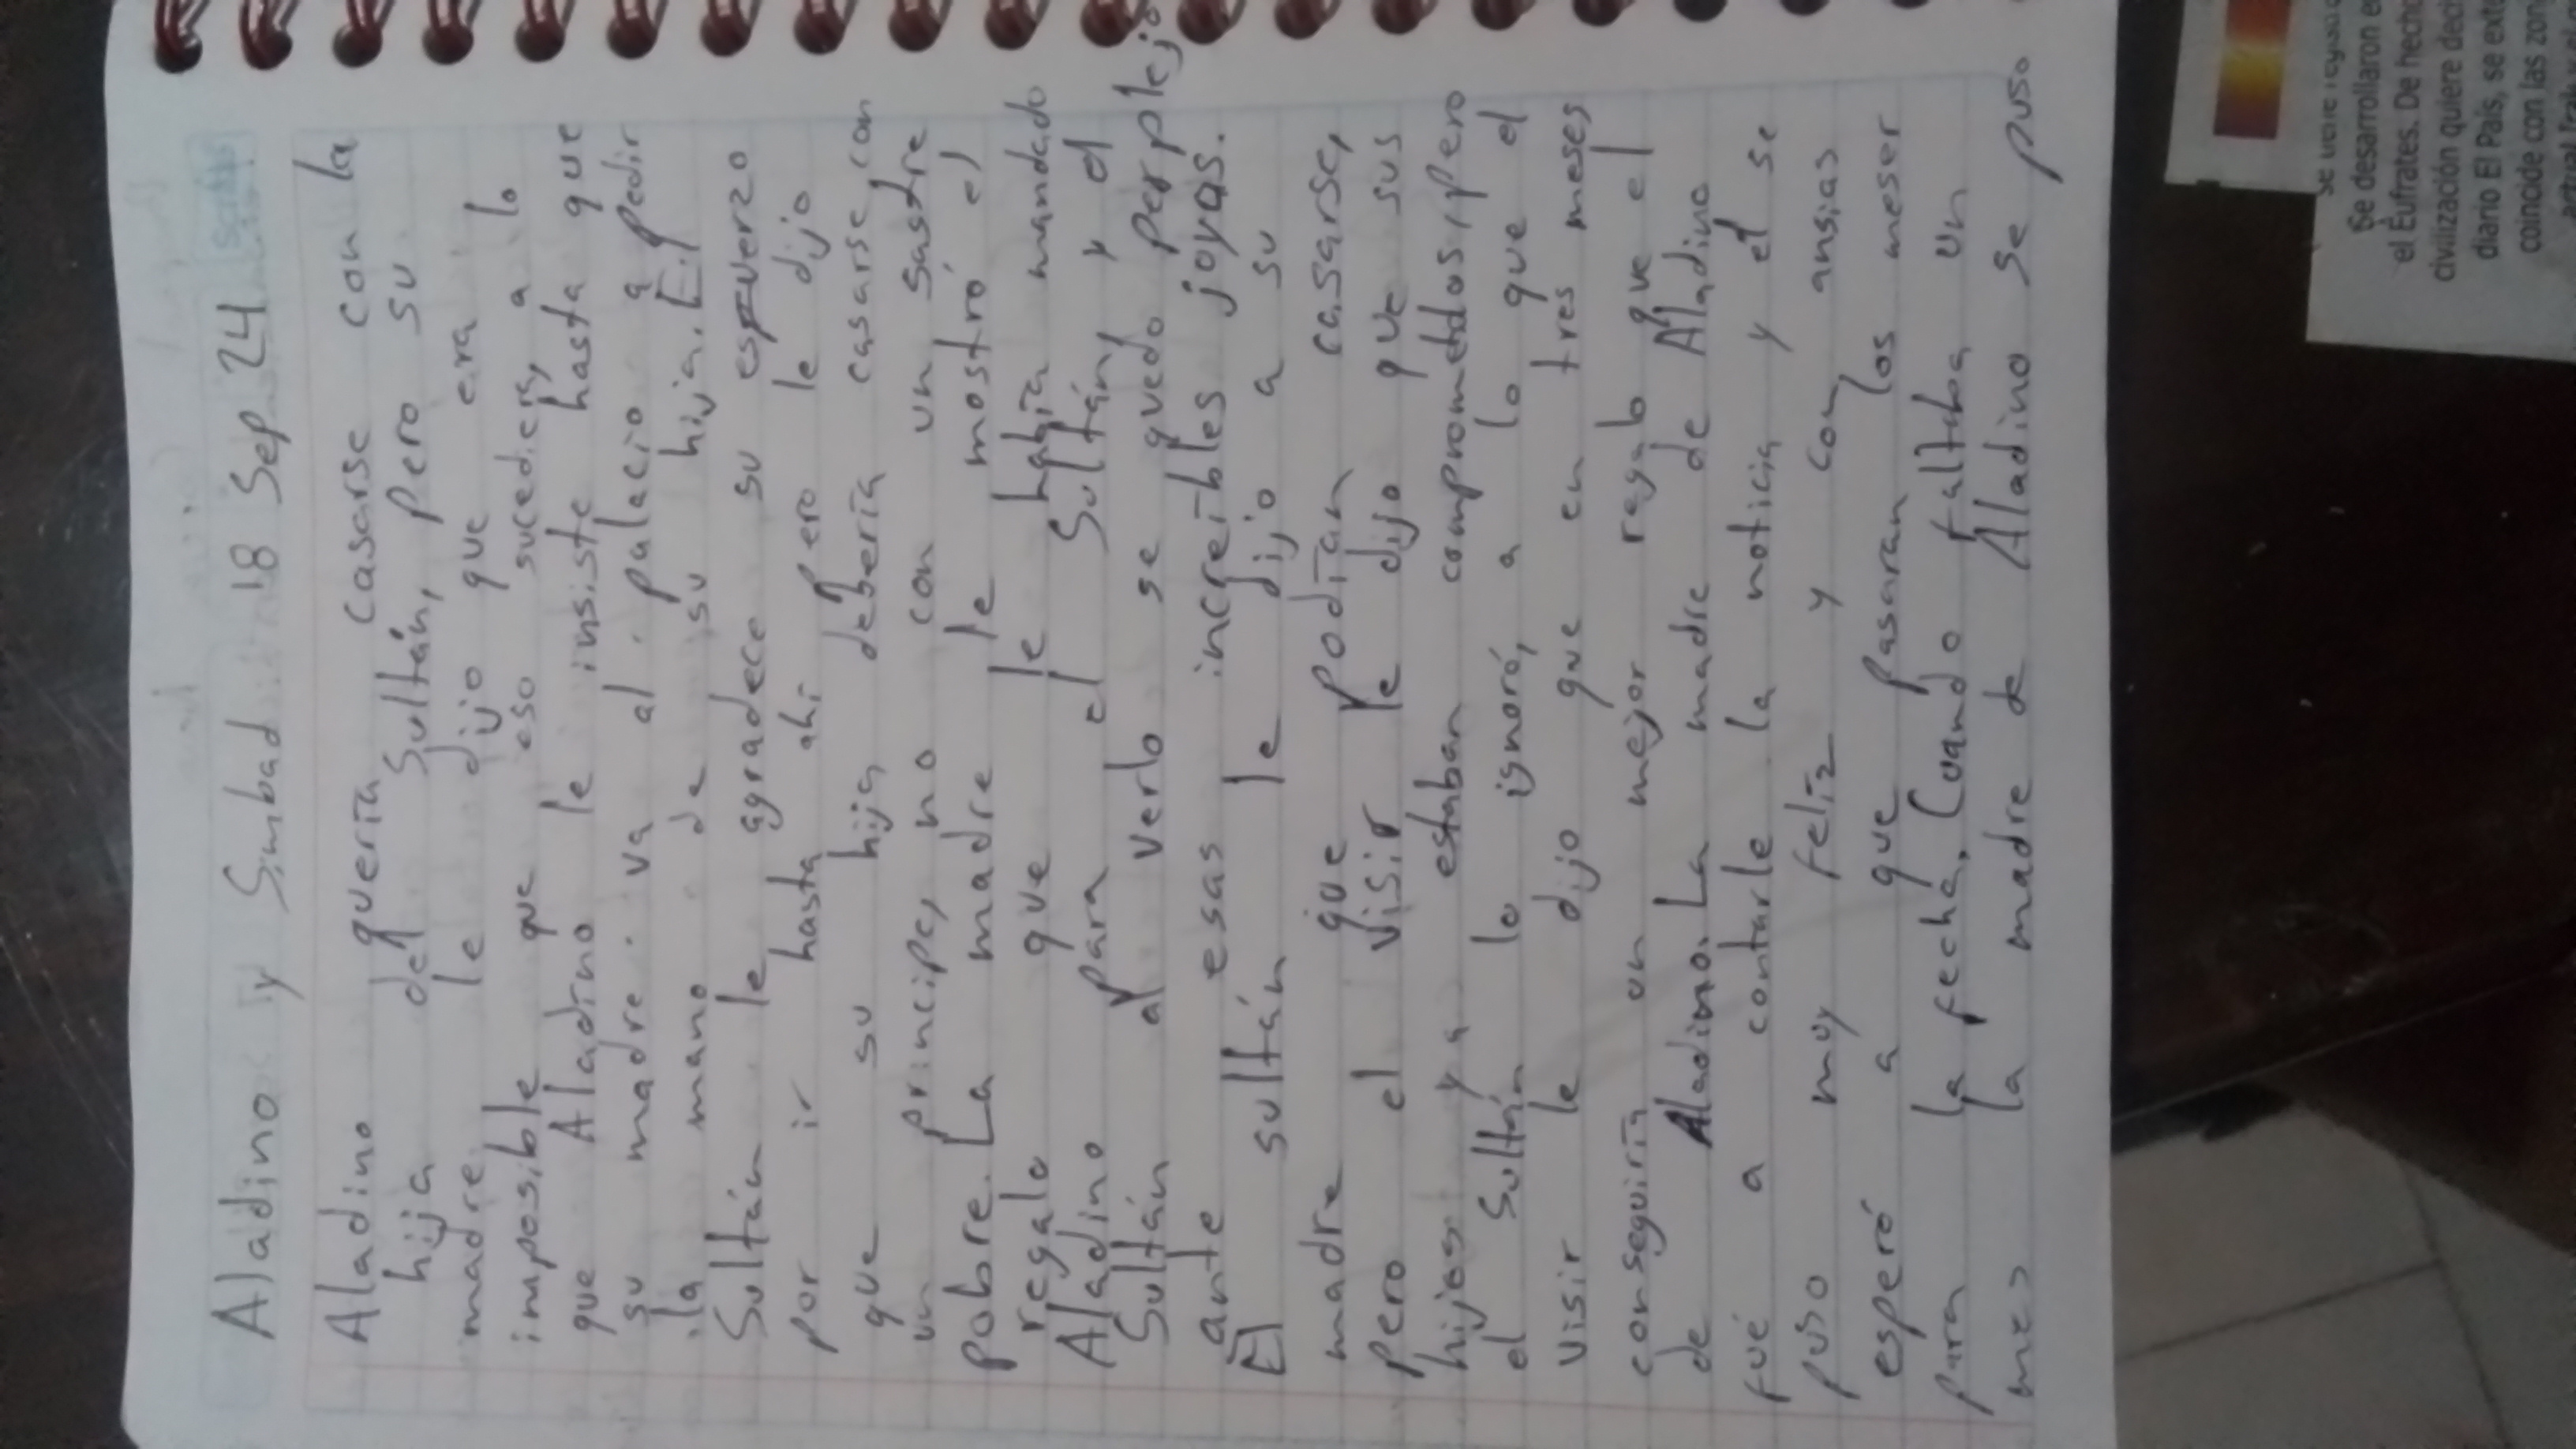 Aladino y Simbad 18 Sep 24
Aladino quería casarse con la
hija del Sultán, pero su
madre le dijo que era
imposible que eso sucediera, a lo
que Aladino le insiste hasta que
su madre va al palacio a pedir
la mano de su hija. El
Sultán le agradece su esfuerzo
por ir hasta ahí pero le dijo
que su hija debería casarse con
un príncipe, no con un sastre
pobre. La madre le mostró el
regalo que le había mandado
Aladino para el Sultán, y el
Sultán al verlo se quedó perplejo
ante esas increíbles joyas.
El sultán le dijo a su
madre que podían casarse,
pero el visir le dijo que sus
hijos ya estaban comprometidos, pero
el Sultán lo ignoró, a lo que el
visir le dijo que en tres meses
conseguiría un mejor regalo que el
de Aladino. La madre de Aladino
fué a contarle la noticia y el se
puso muy feliz y con ansias
esperó a que pasaran los meser
para la fecha. Cuando faltaba un
mes la madre de Aladino se puso
Se desarrollaron e
el Éufrates. De hecho
civilización quiere deci
diario El País, se exte
coincide con las zon